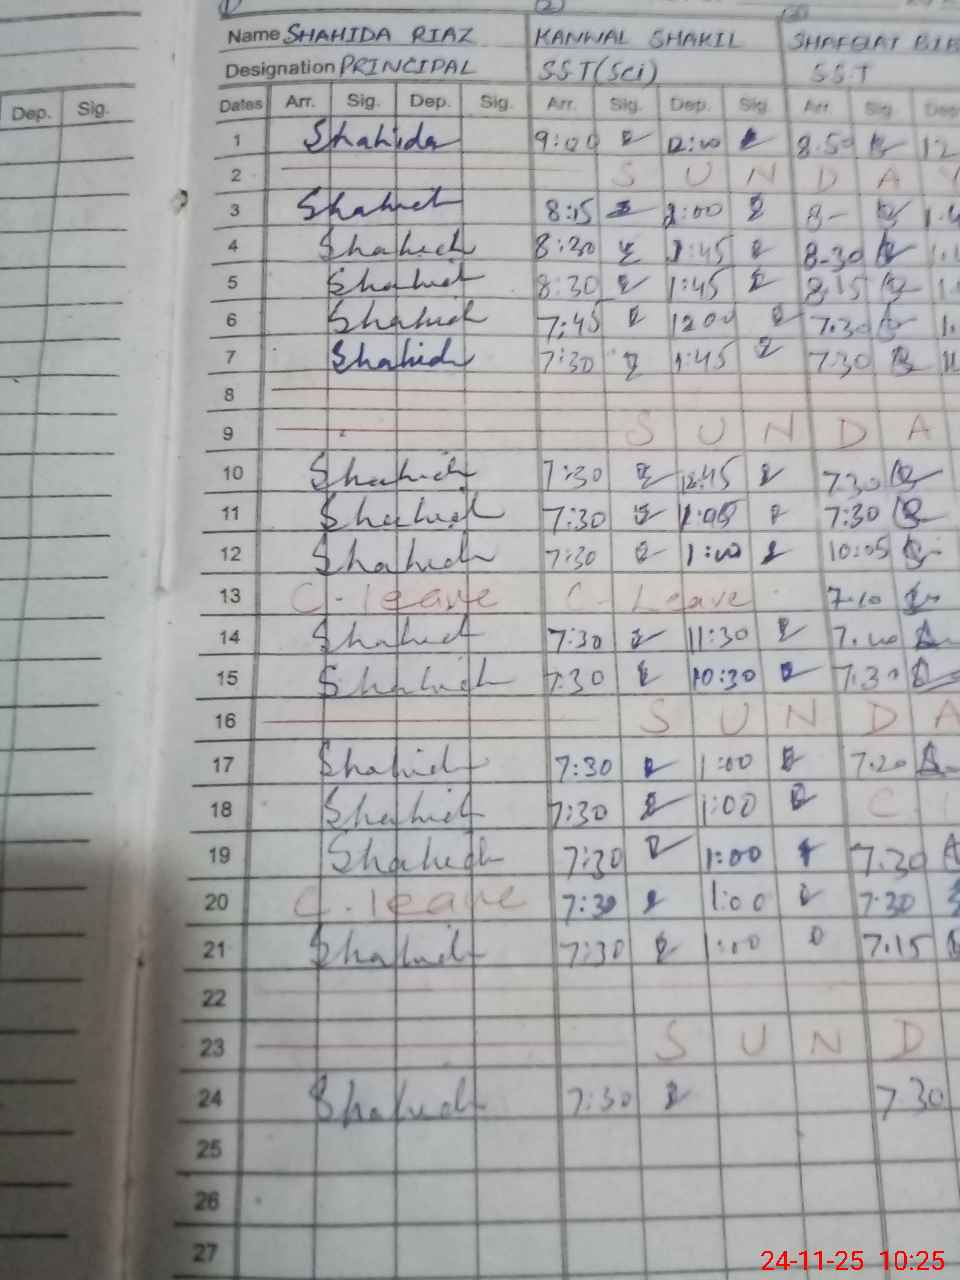 (1) (2)
Name SHAHIDA RIAZ KANWAL SHAKIL SHAFQAT BIB
Designation PRINCIPAL SST(Sci) S.S.T
Dep. Sig. Dates Arr. Sig. Dep. Sig. Arr. Sig. Dep. Sig. Arr. Sig. Dep
1 Shahida 9:00 12:00 8.50 12
2 S U N D A Y
3 Shahid 8:15 8-
4 Shahid 8:30 1:45 8.30
5 Shahid 8:30 1:45 8.15
6 Shahid 7:45 1200 7.30
7 Shahid 7:30 1:45 7.30
8
9 S U N D A
10 Shahid 7:30 7.30
11 Shahid 7:30 7:30
12 Shahid 7:30 1:00 10:05
13 C. leave C. Leave 7.10
14 Shahid 7:30 11:30
15 Shahid 7:30 10:30 7.30
16 S U N D A
17 Shahid 7:30 1:00 7.20
18 Shahid 7:30 1:00 C
19 Shahid 7:30 1:00 7.30
20 C. leave 7:30 1:00 7.30
21 Shahid 7:30 7.15
22
23 S U N D
24 Shahid 7:30 7 30
25
26
27
24-11-25 10:25